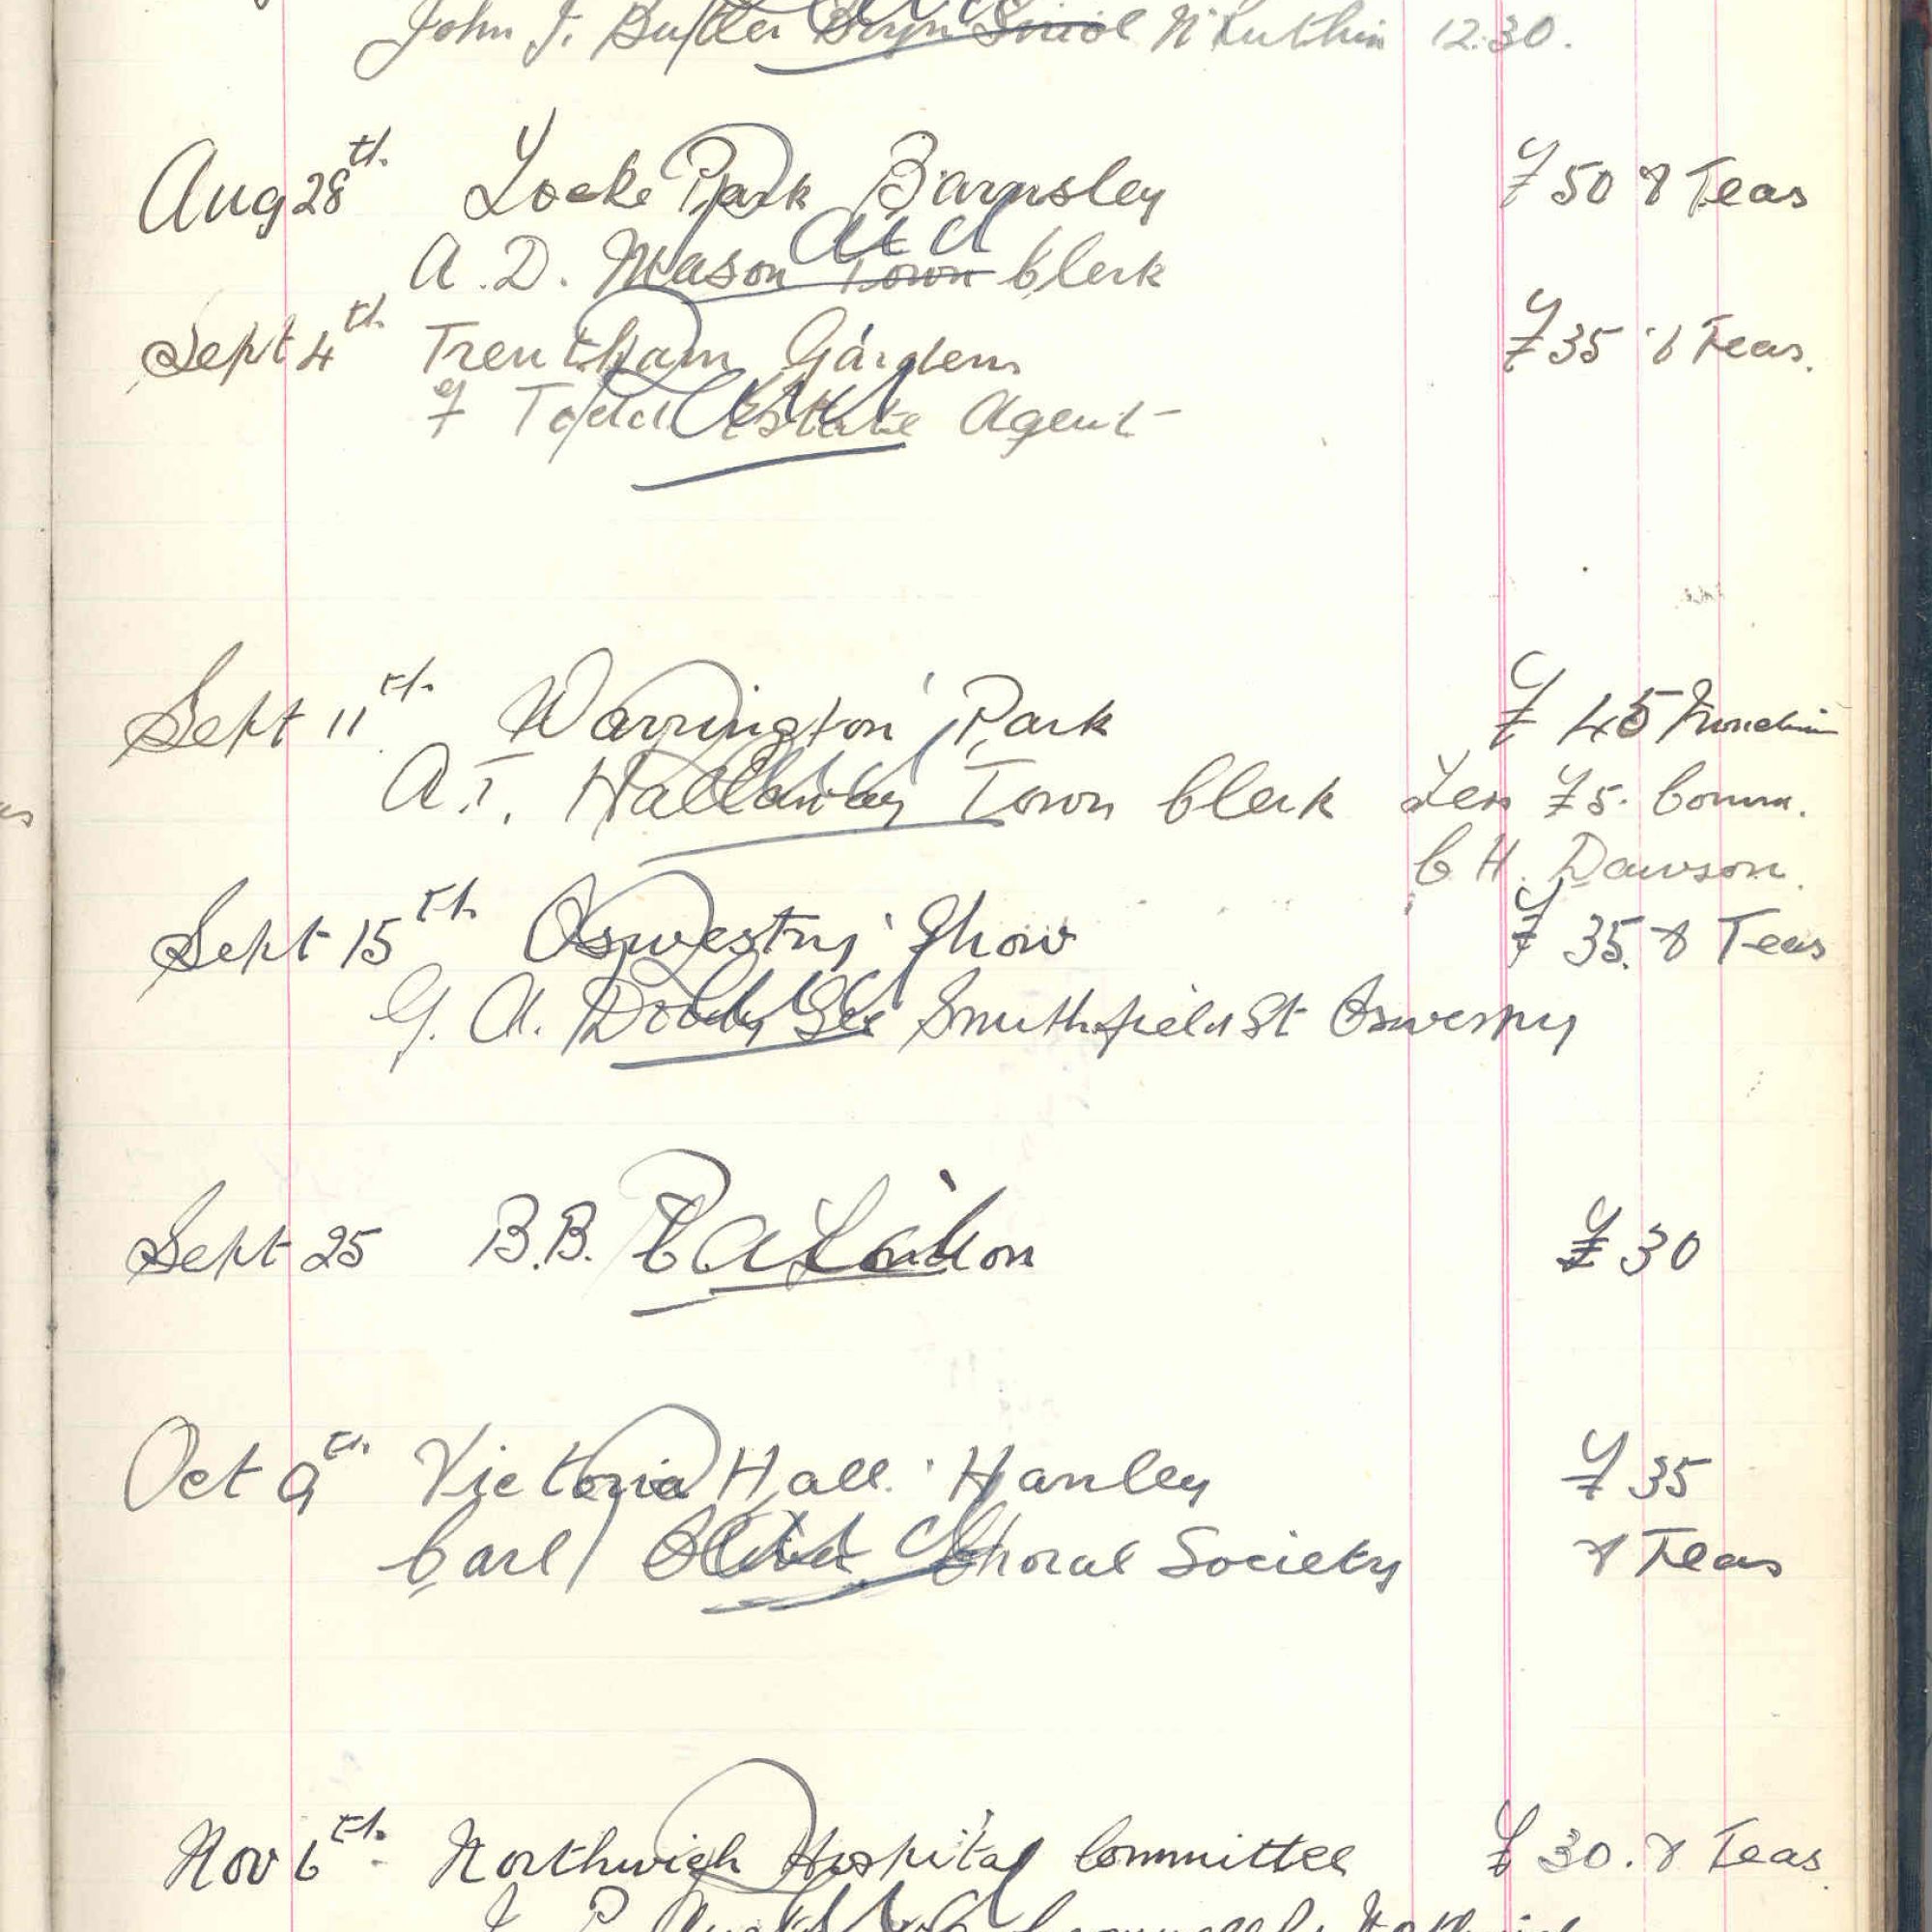 John J. Butler Bryn Siriol Nr Ruthin 12.30.
Aug 28th Locke Park Barnsley £50 & Teas
A. D. Mason Town Clerk
Sept 4th Trentham Gardens £35 & Teas.
F Todd Estate Agent
Sept 11th Warrington Park £45
A.T. Hallaway Town Clerk Less £5. Comm.
C H. Dawson.
Sept 15th Oswestry Show £35. & Teas
G. A. Dobby Sec Smithfield St Oswestry
Sept 25 B.B.C. London £30
Oct 9th Victoria Hall. Hanley £35
Carl Choral Society & Teas
Nov 6th Northwich Hospital Committee £30. & Teas
Paid
Paid
Paid
Paid
Paid
Paid
Paid